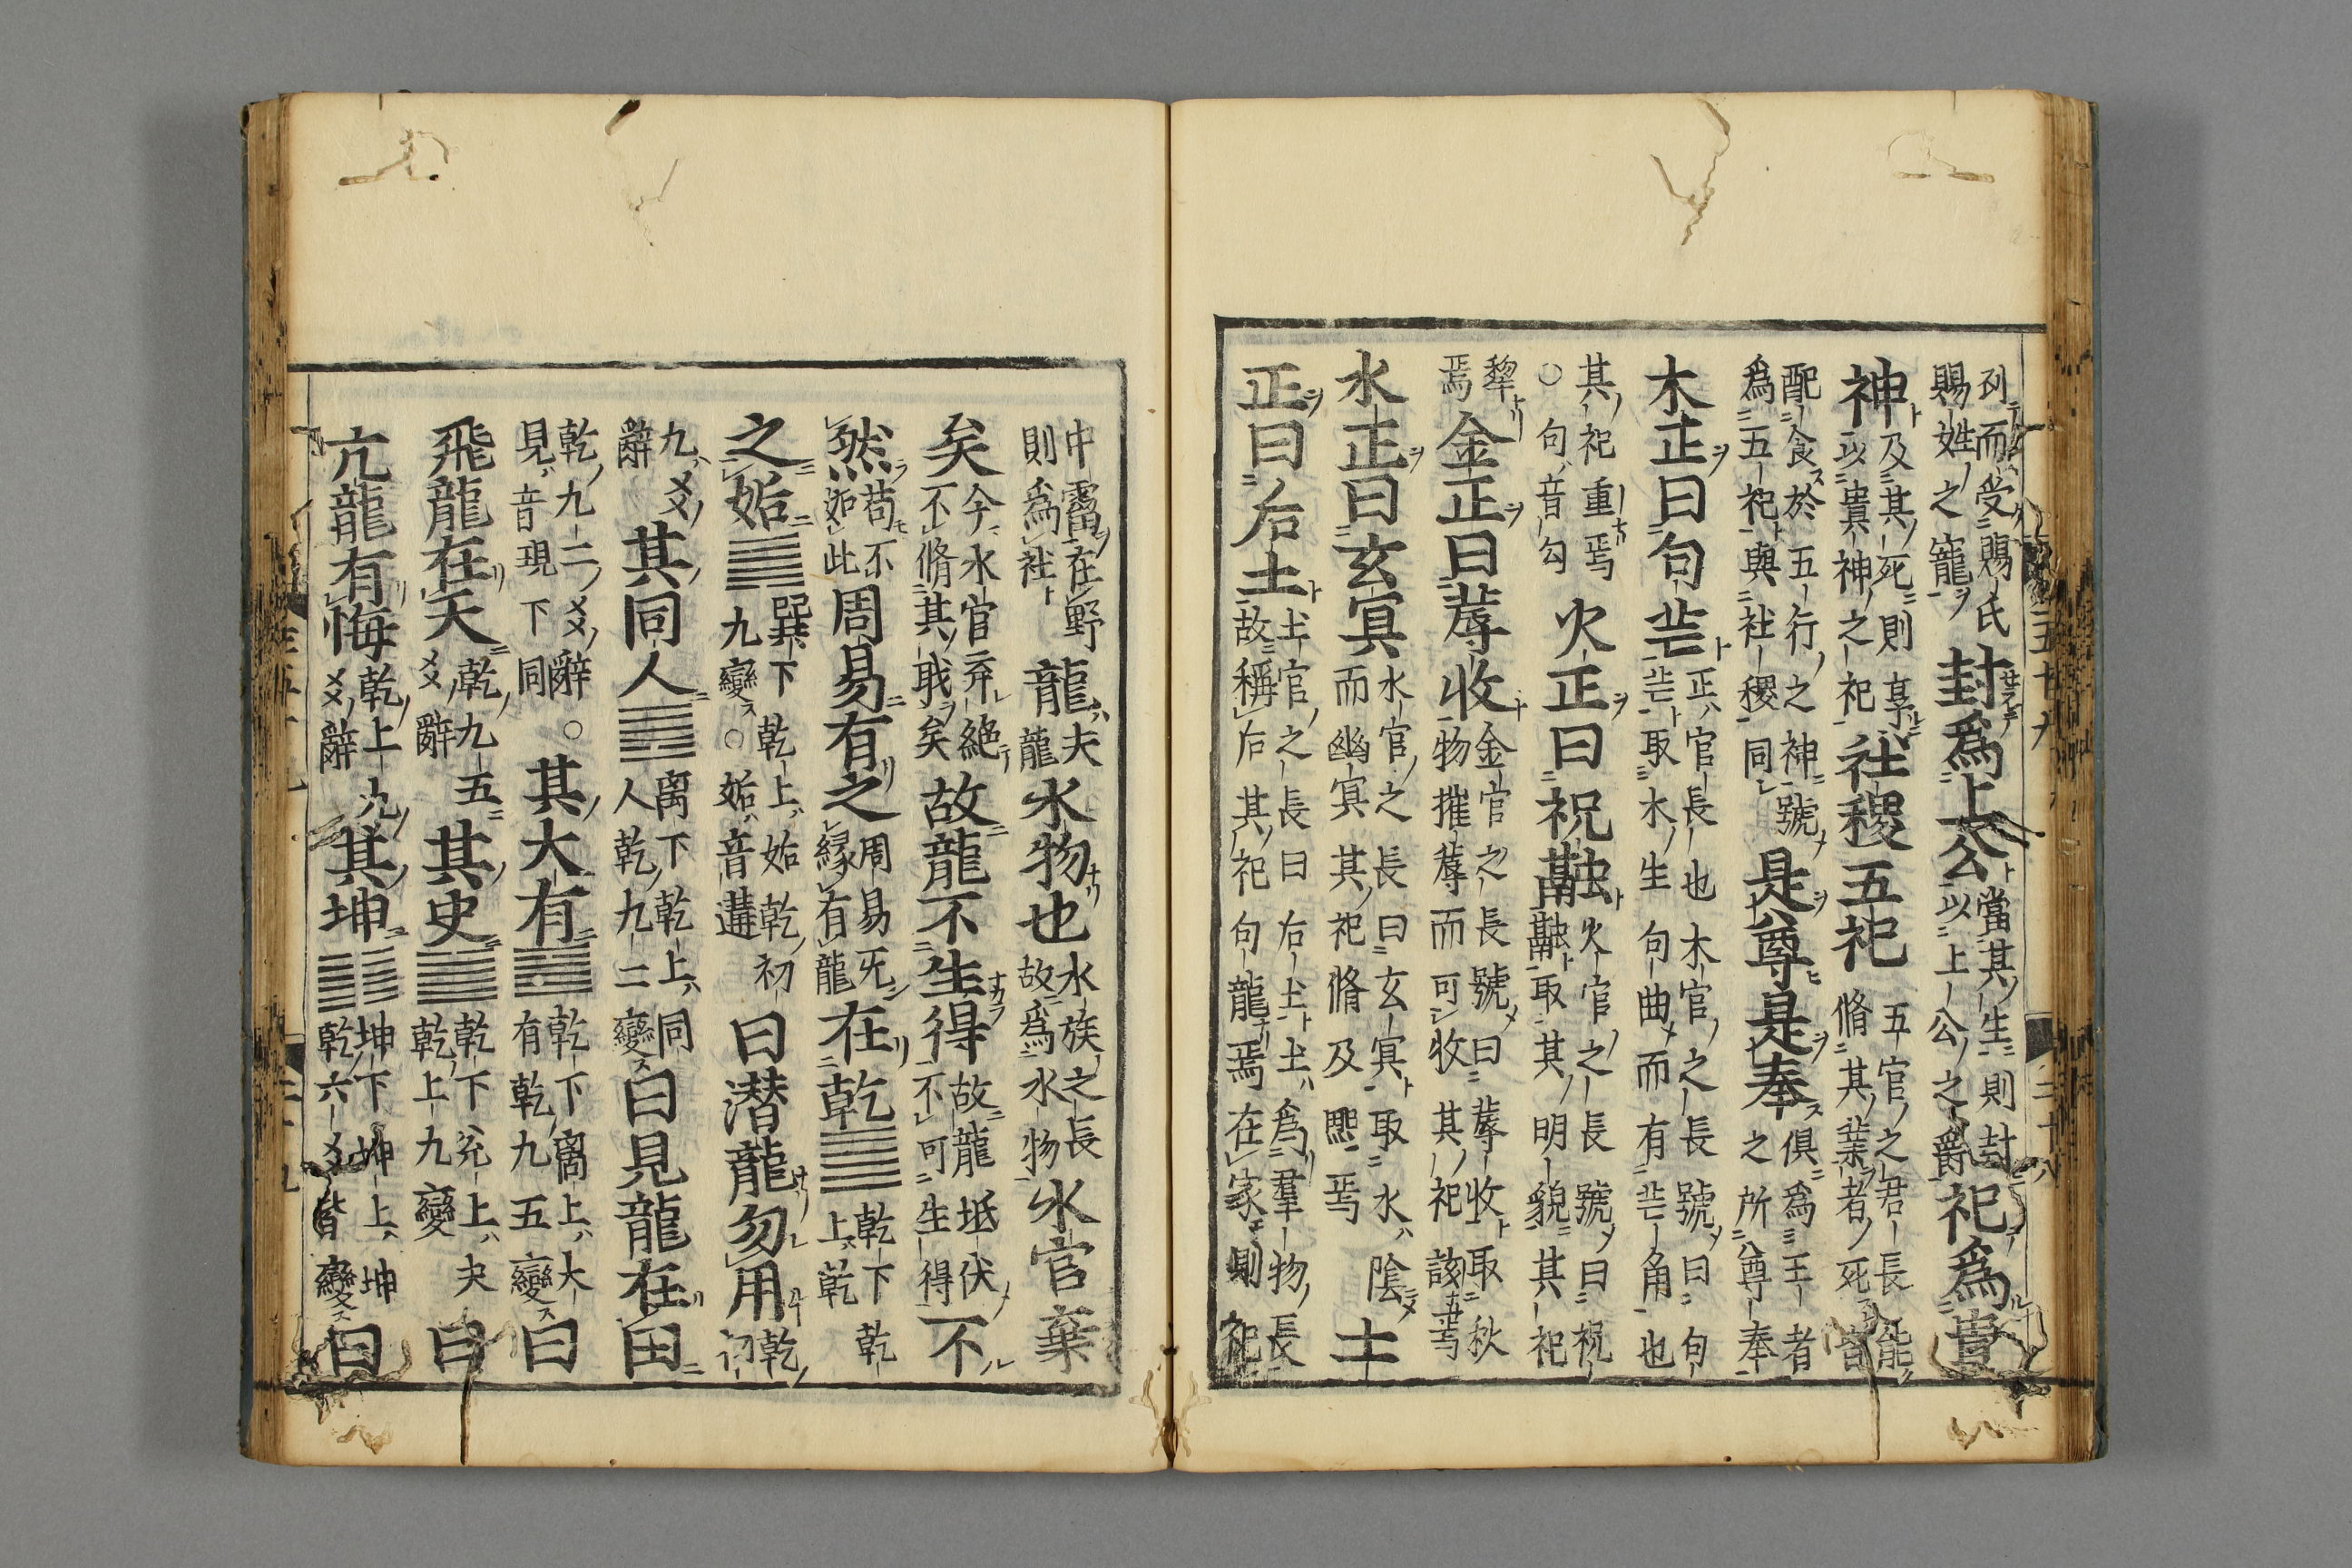 列而受賜氏賜姓之寵封爲上公當其生則封以上公之爵祀爲貴
神及其死則享以貴神之祀社稷五祀五官之君長能脩其業者死皆
配食於五行之神號爲五祀與社稷同是尊是奉俱爲王者之所尊奉
木正曰句芒正官長也木官之長號曰句芒取木生句曲而有芒角也
其祀重焉○句音勾火正曰祝融火官之長號曰祝融取其明貌其祀
犂焉金正曰蓐收金官之長號曰蓐收取秋物摧蓐而可收其祀該焉
水正曰玄冥水官之長曰玄冥取水陰而幽冥其祀脩及熙焉土
正曰后土土官之長曰后土土爲羣物長故稱后其祀句龍焉在家則祀
中霤在野則爲社龍夫龍水物也水族之長故爲水物水官棄
矣今水官弃絶不脩其職矣故龍不生得故龍坻伏不可生得不
然苟不如此周易有之周易旡縁有龍在乾䷀乾下乾上乾
之姤䷫巽下乾上姤乾初九變○姤音遘曰潛龍勿用乾初
九爻辭其同人䷌离下乾上同人乾九二變曰見龍在田
乾九二爻辭○見音現下同其大有䷍乾下离上大有乾九五變曰
飛龍在天乾九五爻辭其夬䷪乾下兊上夬乾上九變曰
亢龍有悔乾上九爻辭其坤䷁坤下坤上坤乾六爻皆變曰